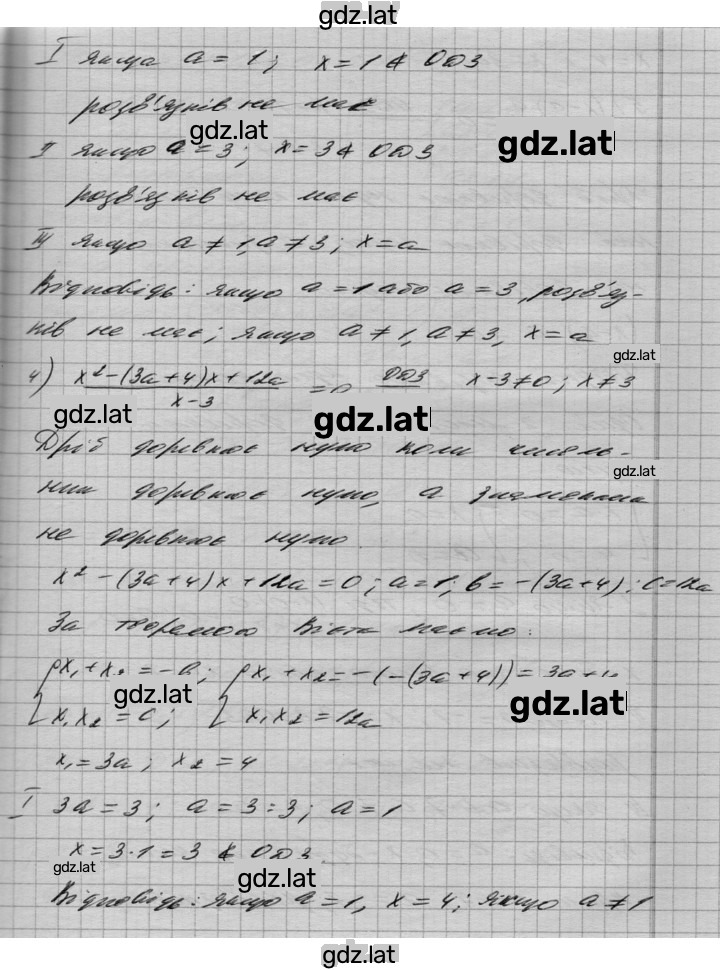 gdz.lat
I якщо a = 1; x = 1 ∉ ОДЗ
розв'язків не має
gdz.lat
gdz.lat
II якщо a = 3; x = 3 ∉ ОДЗ
розв'язків не має
III якщо a ≠ 1, a ≠ 3; x = a
Відповідь: якщо a = 1 або a = 3, розв'яз-
ків не має; якщо a ≠ 1, a ≠ 3, x = a
gdz.lat
4) (x² - (3a + 4)x + 12a) / (x - 3) = 0 ОДЗ x - 3 ≠ 0; x ≠ 3
gdz.lat
gdz.lat
Дріб дорівнює нулю коли чисель-
gdz.lat
ник дорівнює нулю, а знаменник
не дорівнює нулю
x² - (3a + 4)x + 12a = 0; a = 1, b = -(3a + 4); c = 12a
За теоремою Вієта маємо:
{ x₁ + x₂ = -b; { x₁ + x₂ = -(-(3a + 4)) = 3a +
gdz.lat
gdz.lat
x₁x₂ = c; x₁x₂ = 12a
x₁ = 3a; x₂ = 4
I 3a = 3; a = 3 : 3; a = 1
x = 3 · 1 = 3 ∉ ОДЗ
gdz.lat
gdz.lat
Відповідь: якщо a = 1, x = 4; якщо a ≠ 1
gdz.lat